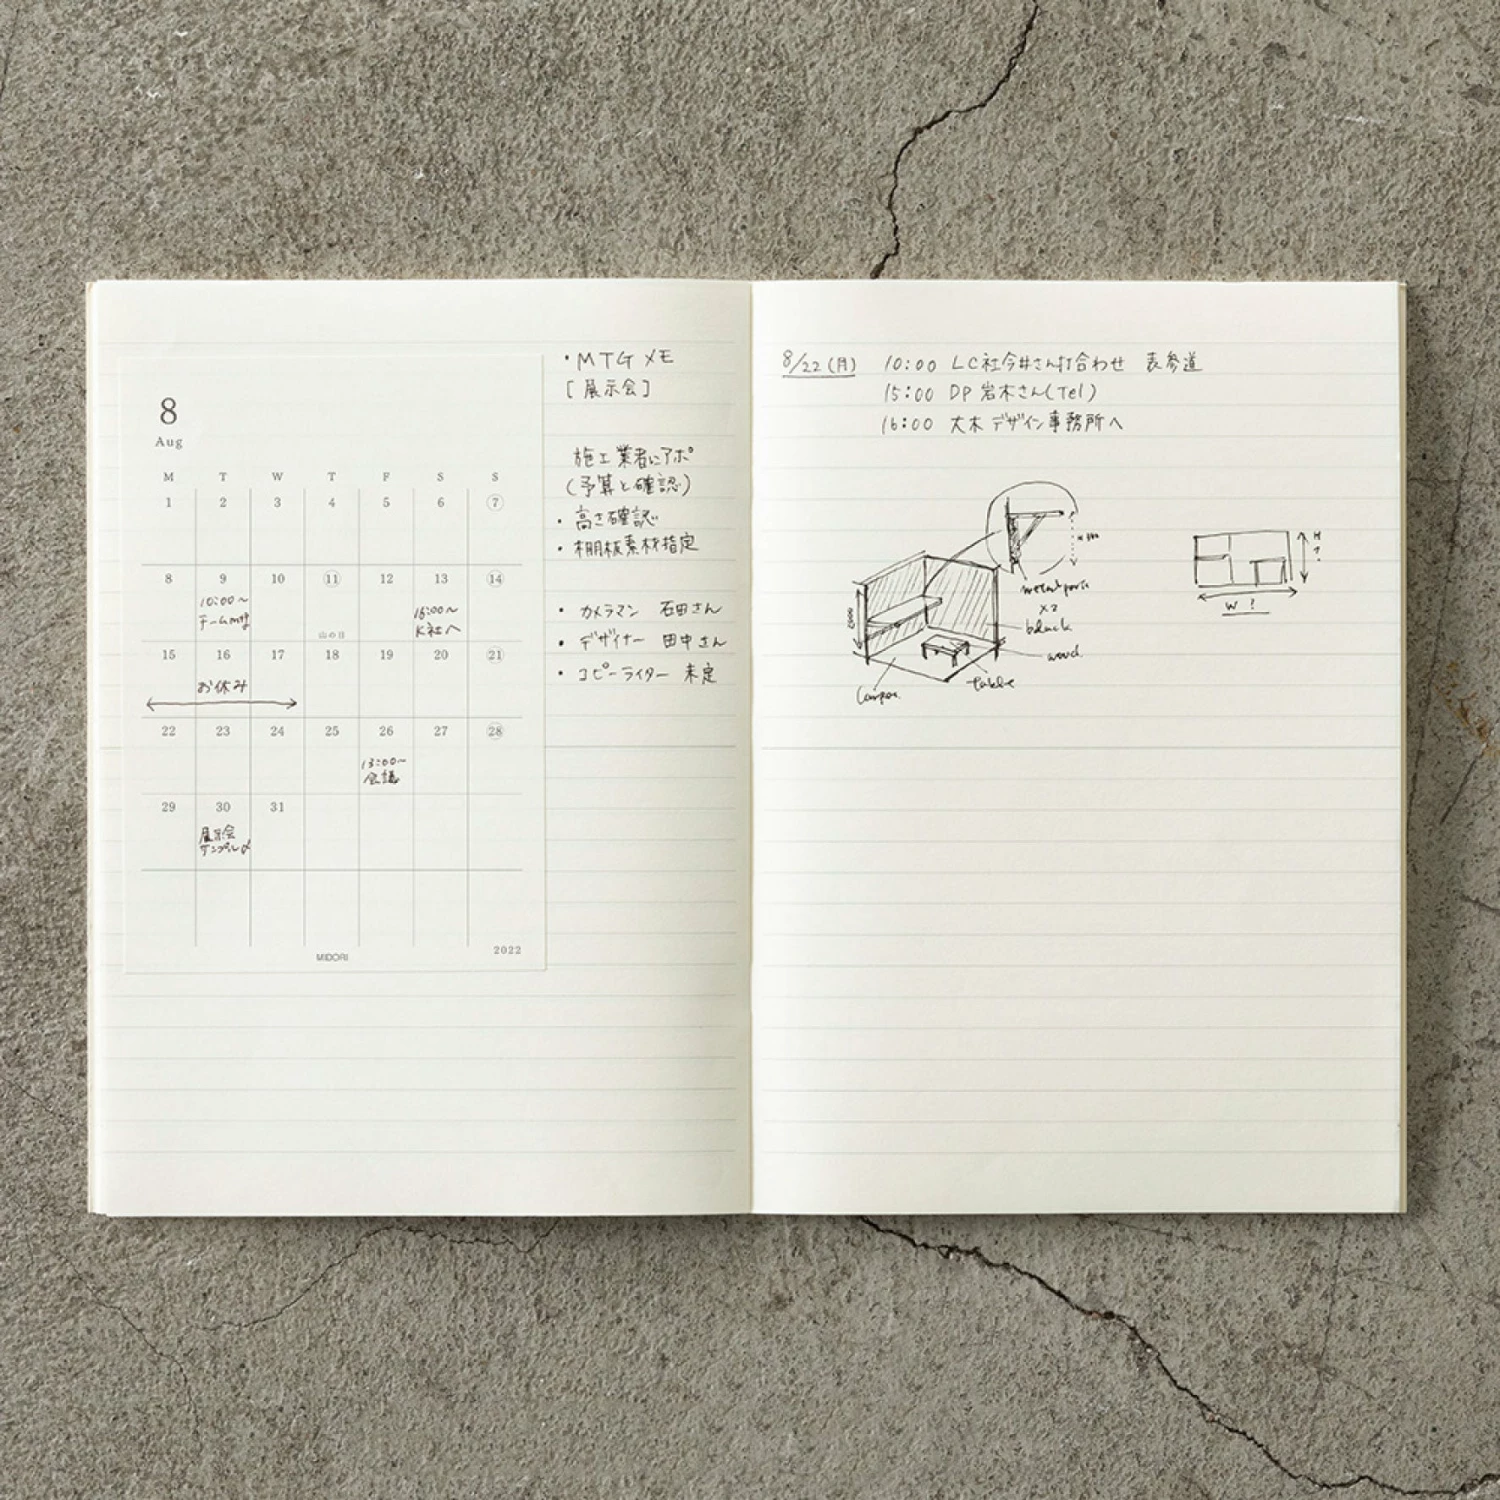 8
Aug
M T W T F S S
1 2 3 4 5 6 7
8 9 10 11 12 13 14
10:00〜
チームmtg
16:00〜
K社へ
山の日
15 16 17 18 19 20 21
お休み
22 23 24 25 26 27 28
13:00〜
会議
29 30 31
展示会
サンプル〆
MIDORI
2022
・MTGメモ
[展示会]
施工業者にアポ
(予算と確認)
・高さ確認
・棚板素材指定
・カメラマン 石田さん
・デザイナー 田中さん
・コピーライター 未定
8/22(月) 10:00 LC社今井さん打合わせ 表参道
15:00 DP 岩木さん(Tel)
16:00 大木デザイン事務所へ
metal parts
×2
black
wood
table
H?
W?